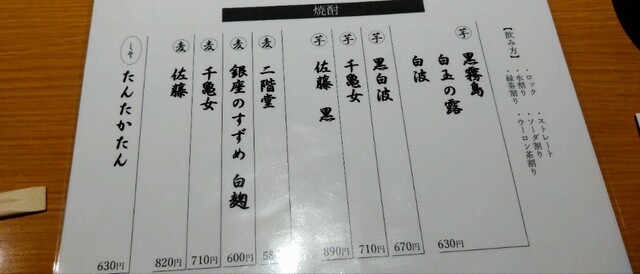 焼酎
【飲み方】
・ロック
・水割り
・緑茶割り
・ストレート
・ソーダ割り
・ウーロン茶割り
芋 黒霧島
白玉の露
白波
630円
芋 黒白波 670円
芋 千亀女 710円
芋 佐藤 黒 890円
麦 二階堂
麦 銀座のすずめ 白麹 600円
麦 千亀女 710円
麦 佐藤 820円
しそ たんたかたん 630円